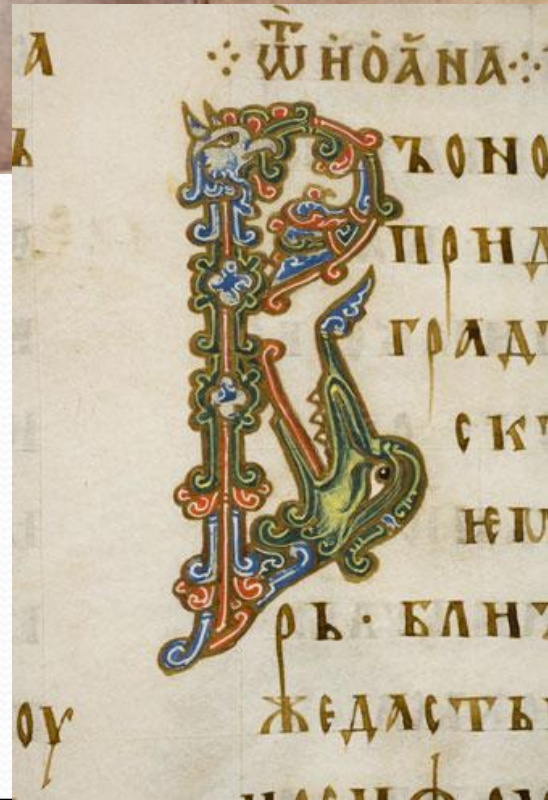 А
Ъ
ОУ
⁘ Ѿ ИОАНА ⁘
ВЪОНО
ПРИД
ГРАД
СК
ѤМ
РЬ· БЛИ
ЖЕДАСТЬ